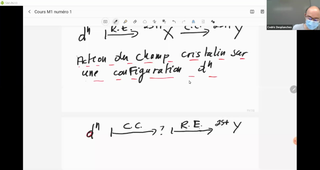 Cours M1 numéro 1
dⁿ R.E. X C.C. 2S+1 Y
Action du champ cristallin sur
une configuration dⁿ
dⁿ C.C. ? R.E. 2S+1 Y